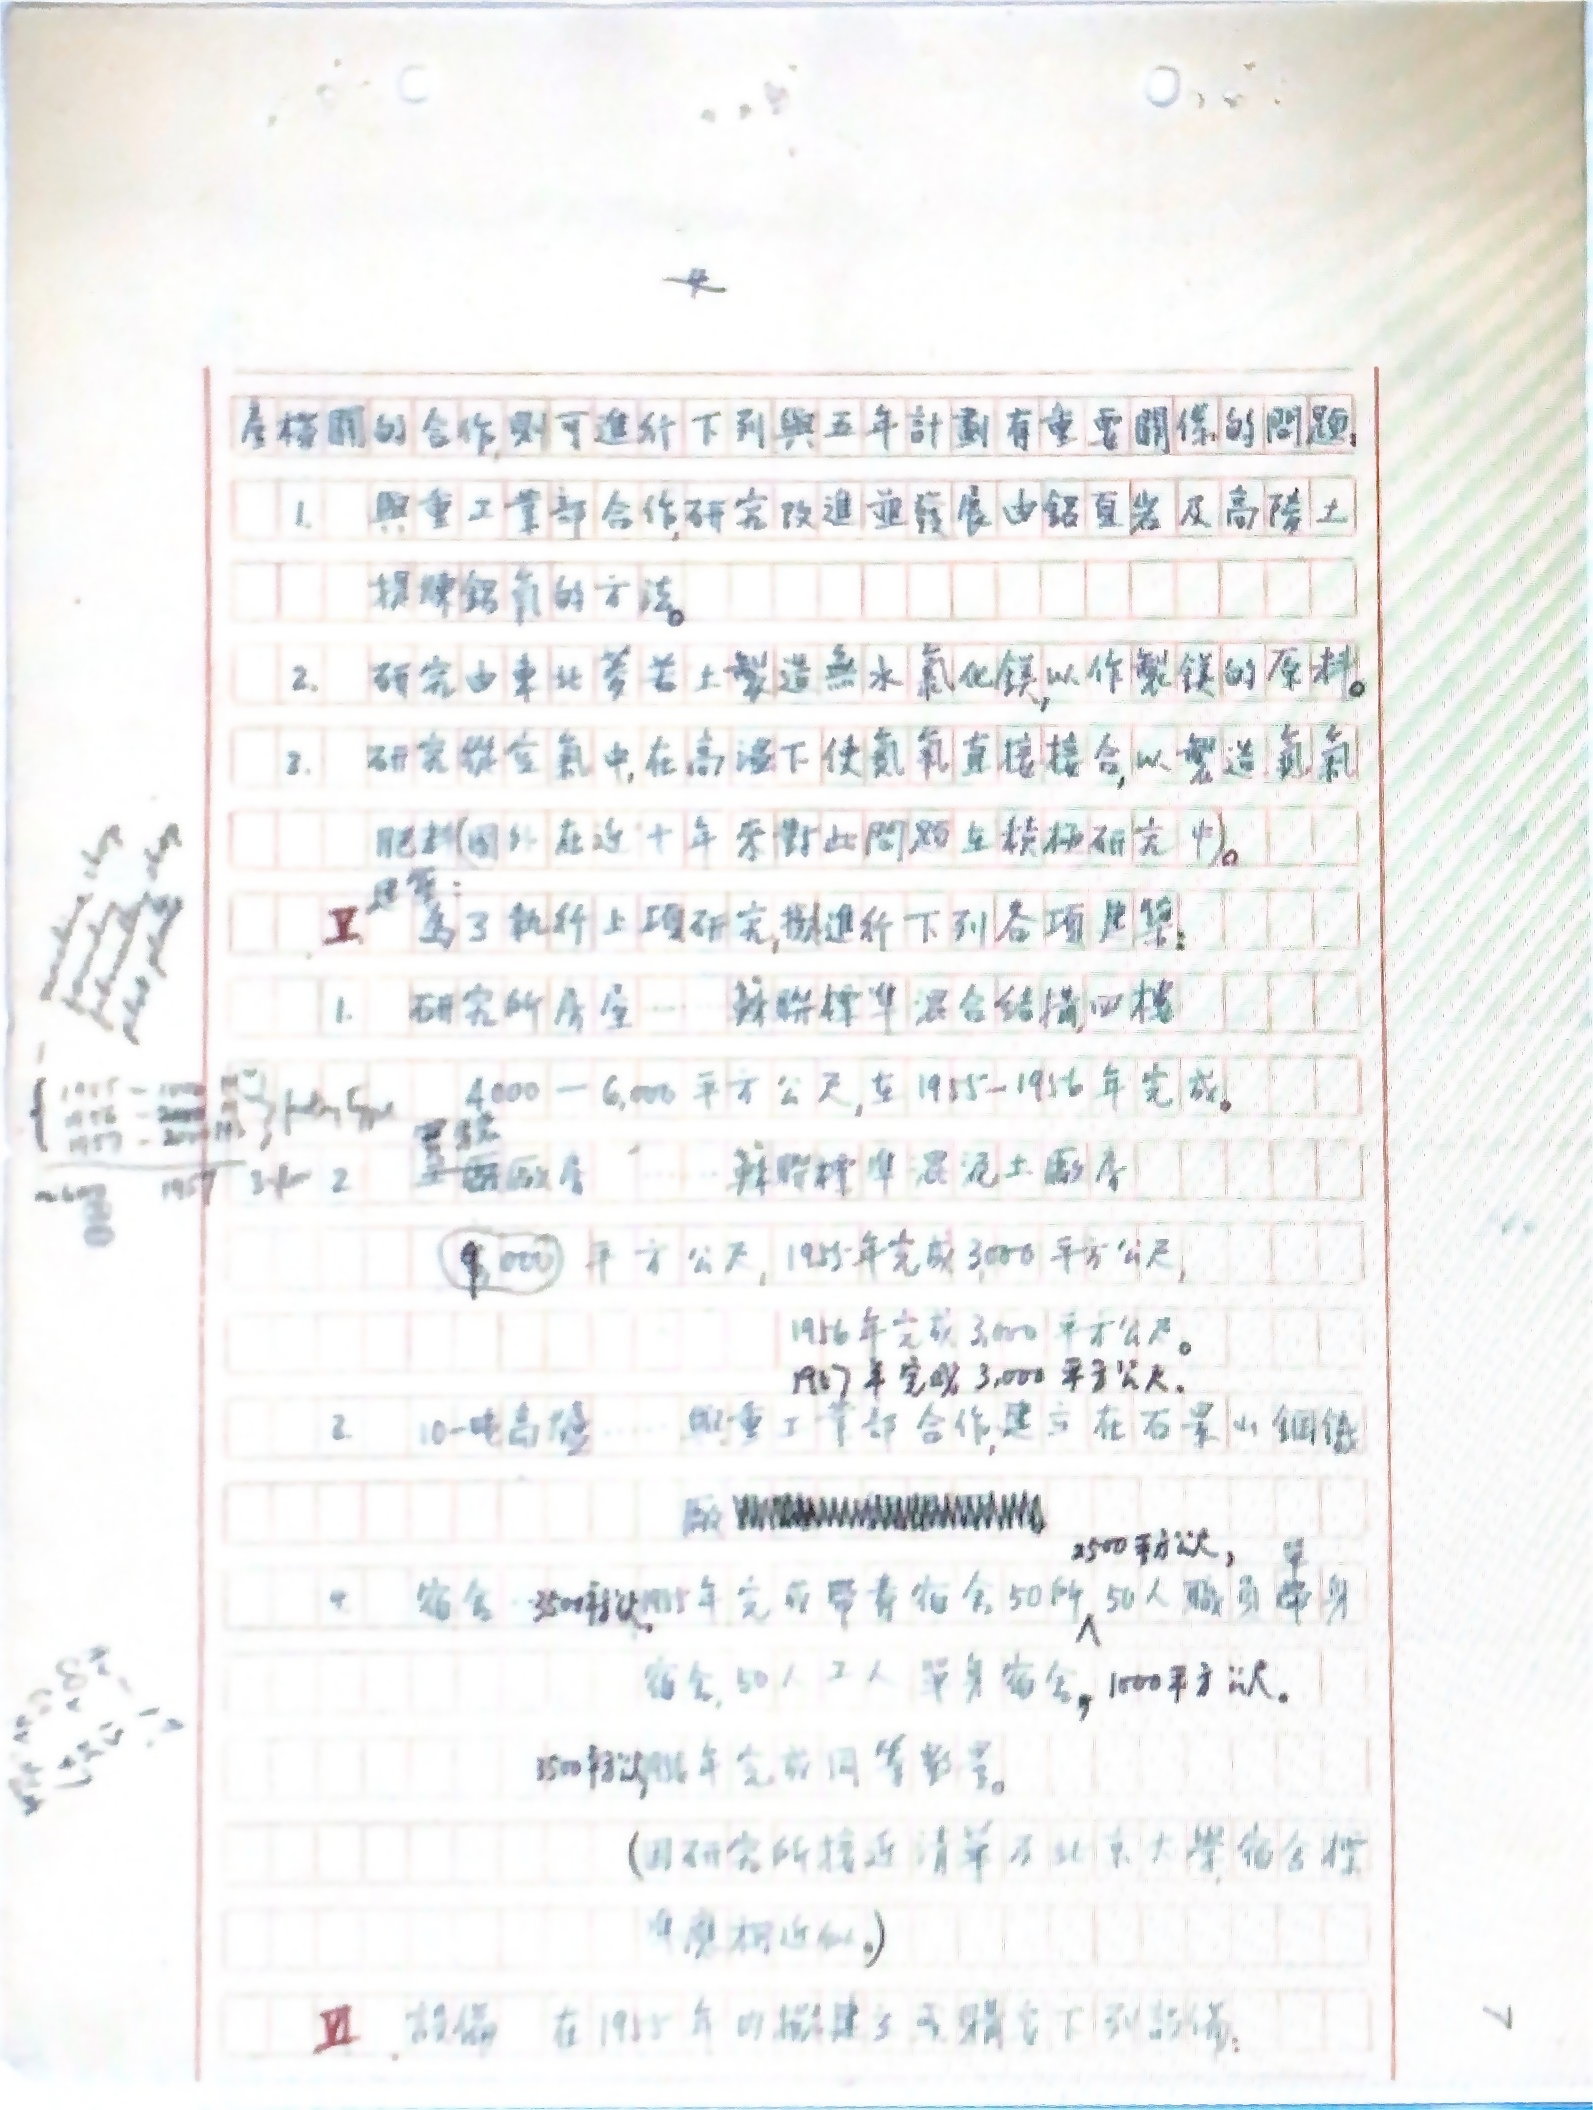 產機關的合作,則可進行下列與五年計劃有重要關係的問題:
1. 與重工業部合作,研究改進並發展由鋁頁岩及高陵土
提煉鋁氧的方法。
2. 研究由東北菱苦土製造無水氯化鎂,以作製鎂的原料。
3. 研究從空氣中,在高溫下使氮氧直接接合,以製造氮氣
肥料(國外在近十年來對此問題在積極研究中)。
建築:
V. 為了執行上項研究,擬進行下列各項建築:
1. 研究所房屋……蘇聯標準混合結構四樓
4000—6,000平方公尺,在1955—1956年完成。
實驗
2 廠房……蘇聯標準混泥土廠房
9,000平方公尺,1955年完成3,000平方公尺,
1956年完成3,000平方公尺。
1957年完成3,000平方公尺.
2 10-吨高爐……與重工業部合作,建立在石景山鋼鐵
廠
2500平方公尺, 單
4 宿舍..3500平方公尺.1955年完成帶眷宿舍50所 50人職員單身
宿舍,50人工人單身宿舍,1000平方公尺.
3500平方公尺,1956年完成同等數量。
(因研究所接近清華及北京大學,宿舍標
準應相近似.)
VI. 設備 在1955年內擬建立及購定下列設備:
7